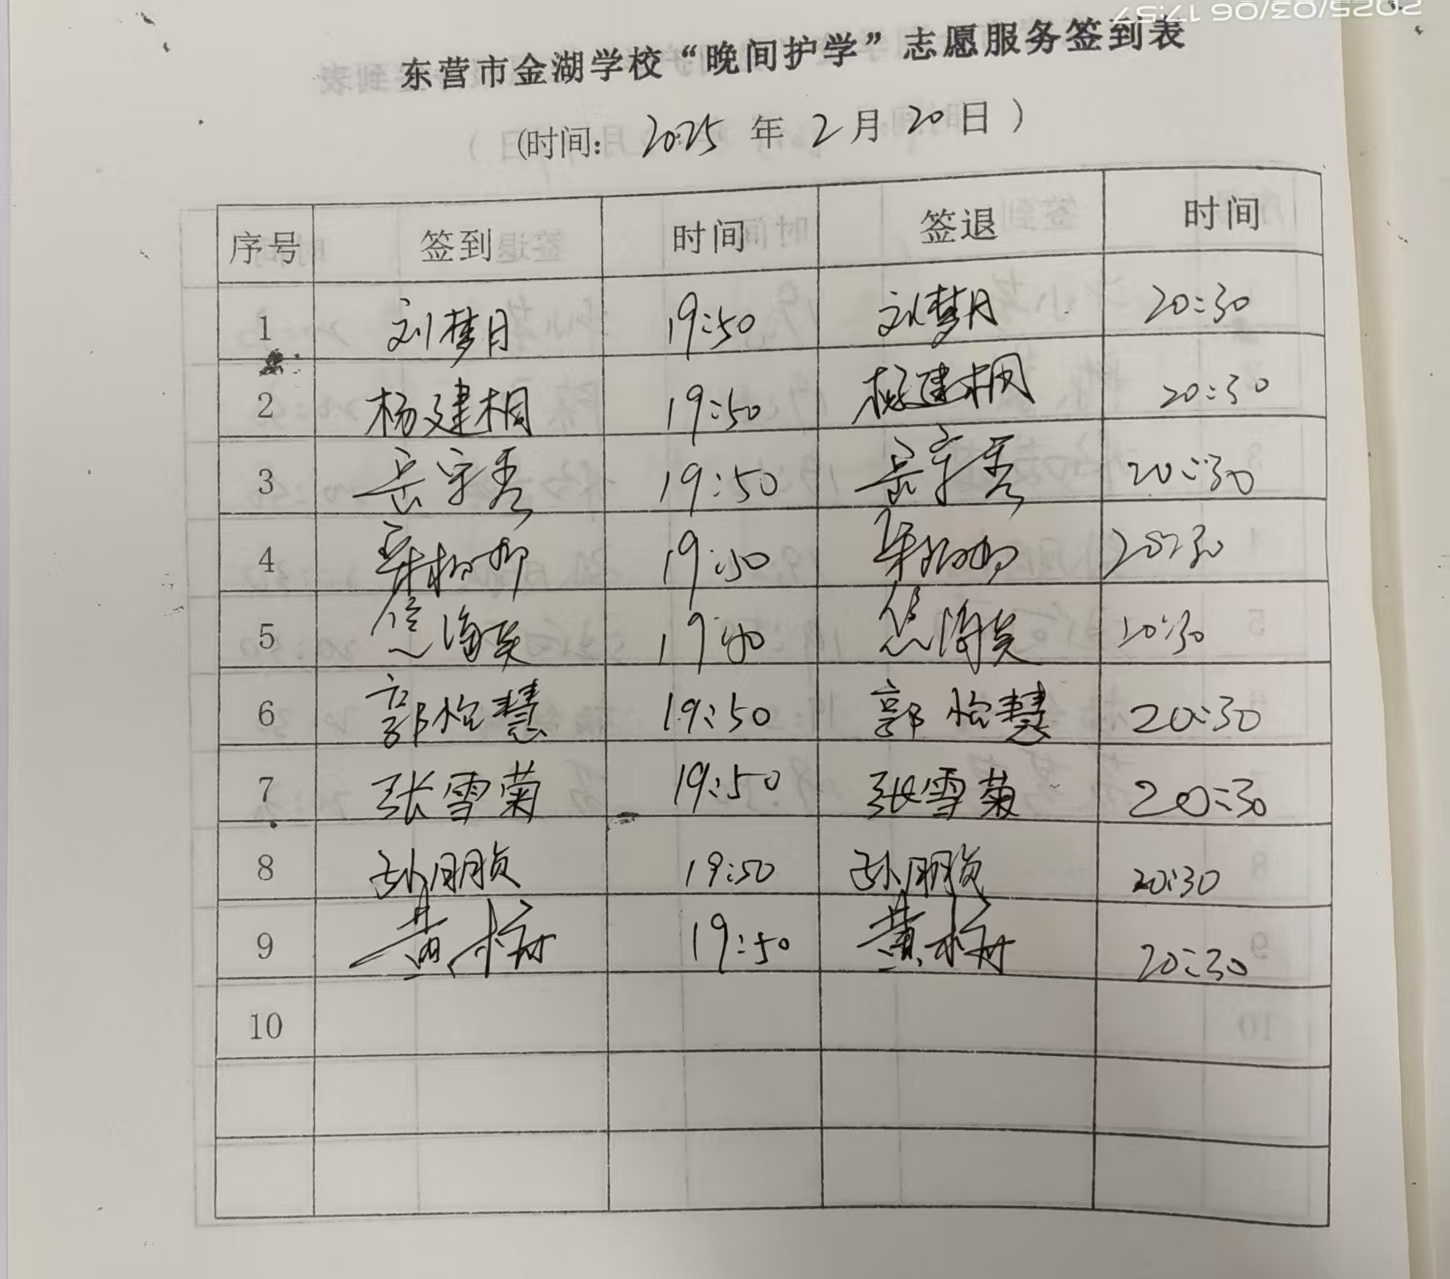 2025/03/06 17:57
东营市金湖学校“晚间护学”志愿服务签到表
(时间: 2025 年 2 月 20 日 )
序号 签到 时间 签退 时间
1 刘梦月 19:50 刘梦月 20:30
2 杨建桐 19:50 杨建桐 20:30
3 岳宇秀 19:50 岳宇秀 20:30
4 19:50 20:30
5 20:30
6 郭怡慧 19:50 郭怡慧 20:30
7 张雪菊 19:50 张雪菊 20:30
8 孙朋贞 19:50 孙朋贞 20:30
9 黄梅 19:50 黄梅 20:30
10